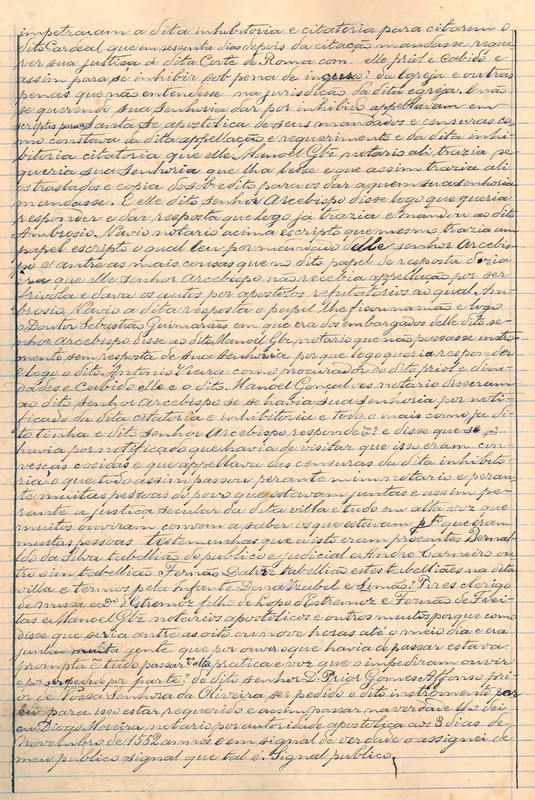 impetraram a dita inhibitoria e citatoria para citarem o
dito Cardeal que em sessenta dias depois da citação mandasse reque
rer sua justiça á dita Corte de Roma com elle priol e Cabido e
assim para se inhibir sob pena de da Igreja e outras
penas que não entendesse na jurisdição da dita egreja. E não
se querendo sua senhoria dar por inhibido appellavam em
scriptis para a Santa Sé apostolica de seus mandados e censuras co
mo constava da dita appellação e requerimento e da dita inhi
bitoria citatoria que elle Manoel Glz notario ali trazia re
queria sua senhoria que lha lesse e que assim trazia ali
os traslados e copia do sobredito para os dar a quem sua senhoria
mandasse. E elle dito senhor Arcebispo disse logo que queria
responder e dar resposta que logo já trazia e mandou ao dito
Ambrosio Navio notario acima escripto que mesmo trazia um
papel escripto o qual leu por mandado delle senhor Arcebis
po e antre as mais cousas que no dito papel de resposta dizia
era que elle senhor Arcebispo não recebia appellação por ser
frivola e dava os autos por apostolos refutatorios ao qual Am
brosio Navio a dita resposta e papel lhe ficou na mão e logo
o Doutor Sebastião Guimarães em que era dos embargados delle dito se
nhor Arcebispo disse ao dito Manoel Glz notario que não passasse instro
mento sem resposta de sua senhoria por que logo queria responder
e logo o dito Antonio Vieira como procurador do dito priol e dini
dades e Cabido elle e o dito Manoel Gonçalves notario disseram
ao dito senhor Arcebispo se se havia sua senhoria por noti
ficado da dita citatoria e inhibitoria e todo o mais como já di
to tinha e dito senhor Arcebispo responde e disse que se
havia por notificado que havia de visitar que isso eram con
vesças cosidas e que appellava das censuras da dita inhibito
ria o que tudo assim passou perante mim notario e peran
te muitas pessoas do povo que estavam juntas e assim pe
rante a justiça secular da dita villa e tudo em alta voz que
muitos ouviram convem a saber os que estavam que eram
muitas pessoas testemunhas que a isto eram presentes Bernal
do da Silva tabellião do publico e judicial e André Carneiro ou
tro sim tabellião Fernão tabellião estes tabelliães na dita
villa e termos pela Infante Dona Izabel e Simão Pires clerigo
de missa e D. Estremoz filho de Lopo Estremoz e Fernão de Frei
tas e Manoel Glz notarios apostolicos e outros muitos porque co
disse que seria antre as oito ou nove horas até o meio dia e era
junta muita gente que por ouver o que havia de passar estava
prompta e tudo passar pratica e voz que o impediram ouvir
e por ser pedido por parte do dito senhor D. Prior Gomes Affonso pri
ór de Nossa Senhora da Oliveira ser pedido o dito instromento por
eu para isso estar requerido e assim passar na verdade lho dei
eu Diogo Moreira notario por autoridade apostolica aos 3 dias de
Novembro de 1552 annos e em signal de verdade o assignei de
meu publico signal que tal é. Signal publico